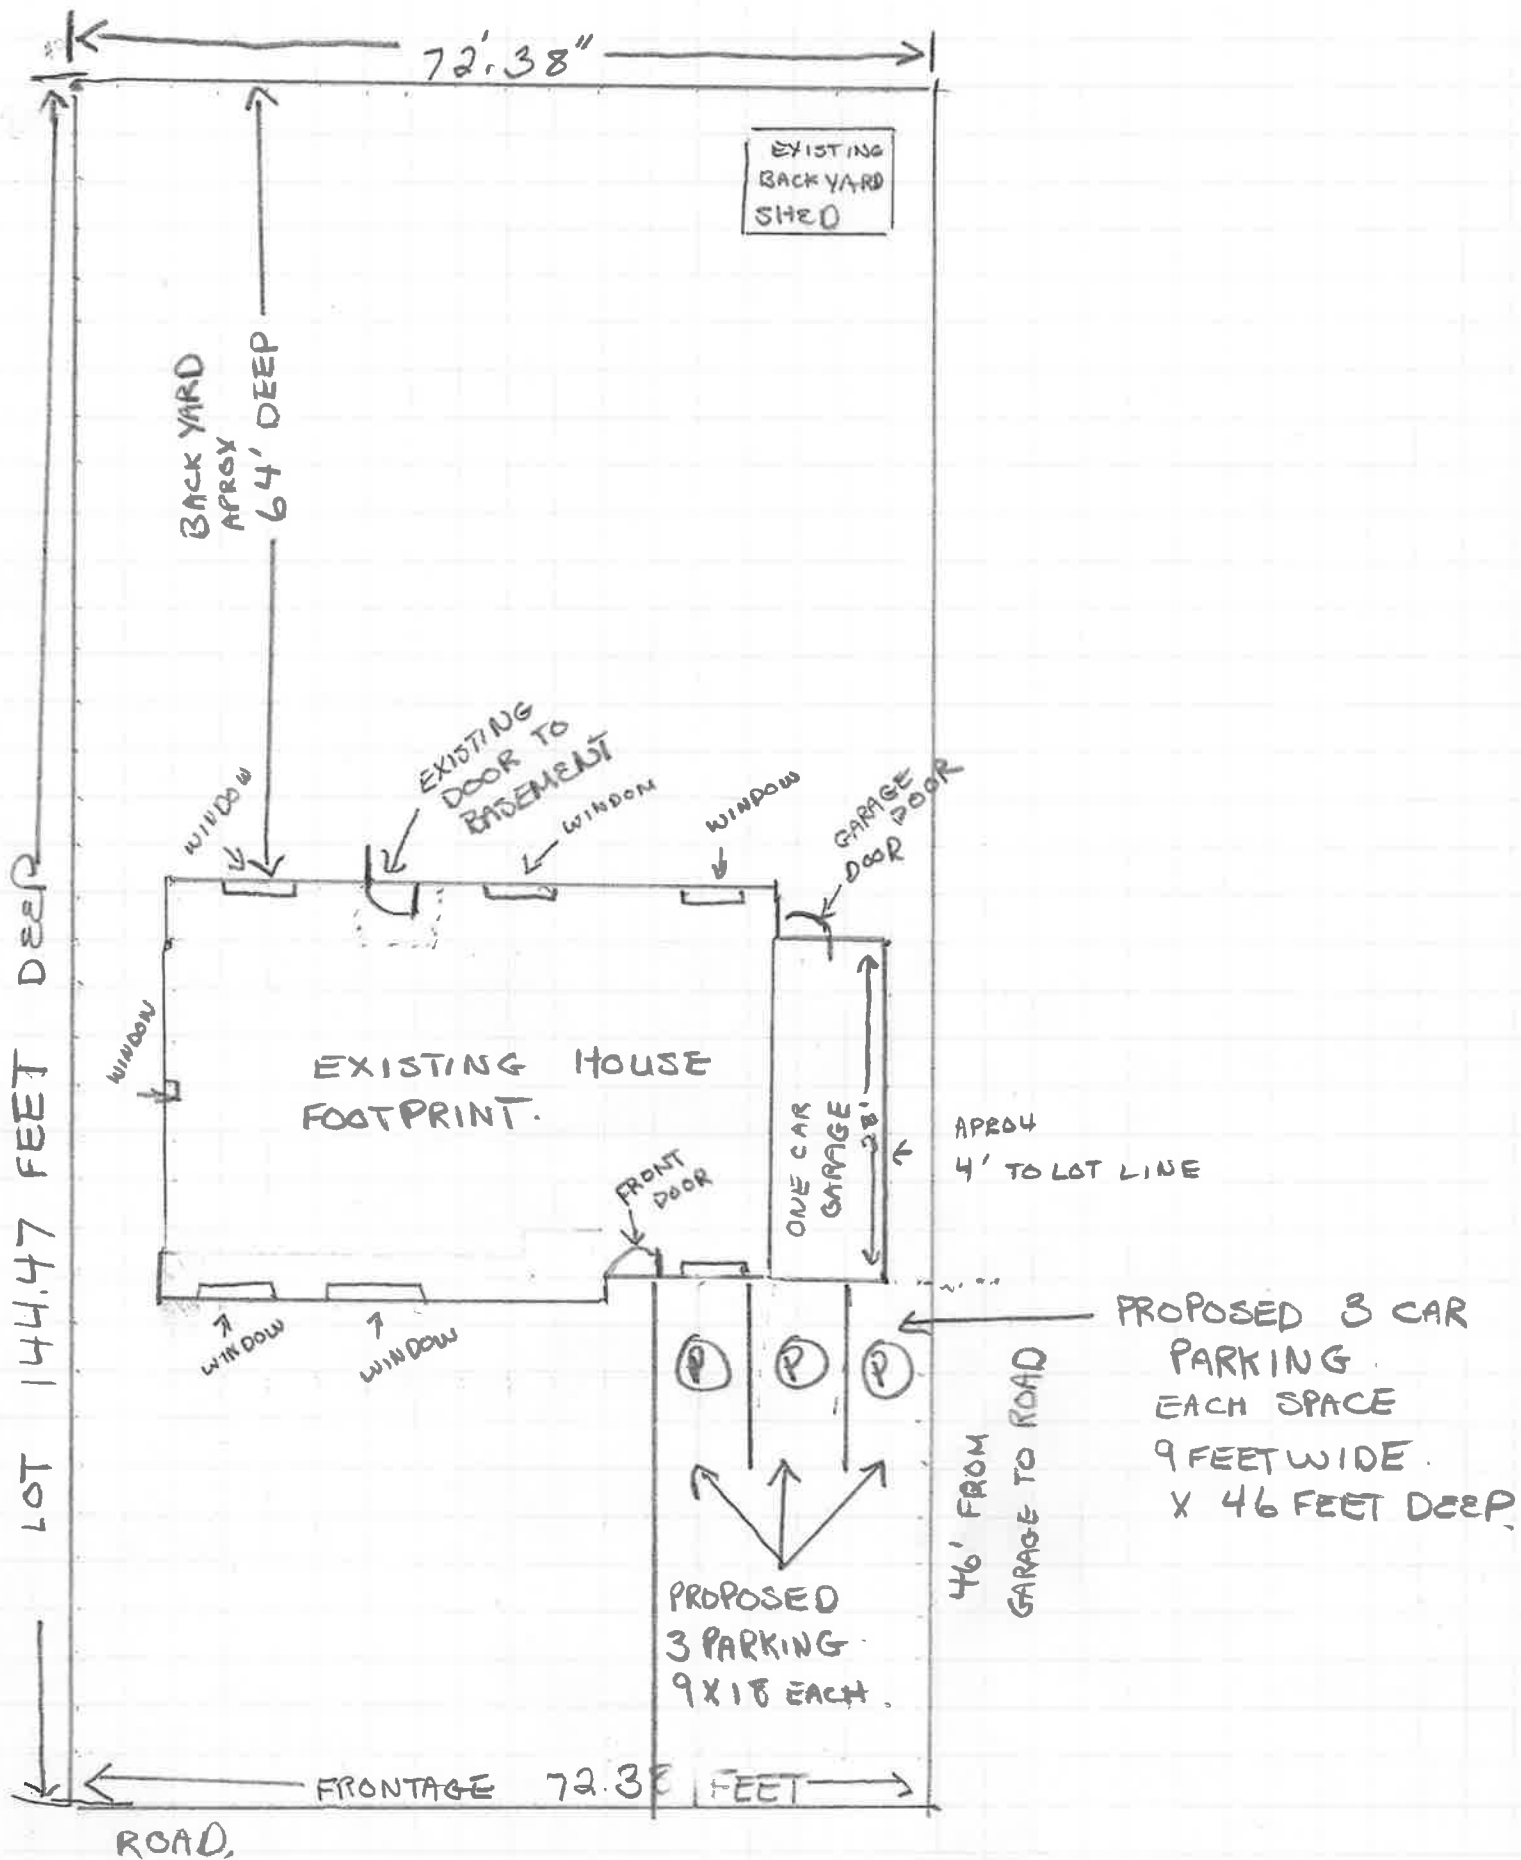 72'.38"
EXISTING
BACK YARD
SHED
BACK YARD
APROX
64' DEEP
LOT 144.47 FEET DEEP
WINDOW
EXISTING
DOOR TO
BASEMENT
WINDOW
WINDOW
GARAGE
DOOR
DOOR
WINDOW
EXISTING HOUSE
FOOTPRINT.
ONE CAR
GARAGE
28'
4' TO LOT LINE
FRONT
DOOR
WINDOW
WINDOW
P
P
P
PROPOSED 3 CAR
PARKING.
EACH SPACE
9 FEET WIDE.
X 46 FEET DEEP.
46' FROM
GARAGE TO ROAD
PROPOSED
3 PARKING.
9X18 EACH.
FRONTAGE 72.38 FEET
ROAD.